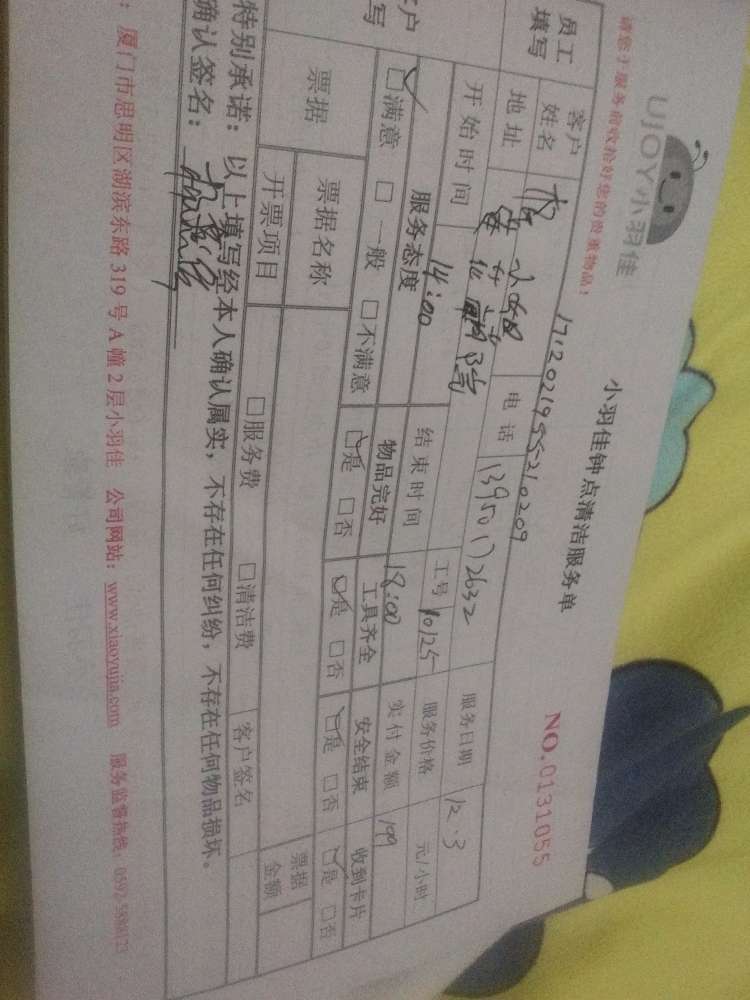 UJOY小羽佳
小羽佳钟点清洁服务单
NO.0131055
请您于服务前收拾好您的贵重物品!
171202195521 0209
员工填写
客户姓名
电话 13950172632
服务日期 12.3
地址
工号 10125
服务价格 元/小时
开始时间 14:00
结束时间 18:00
实付金额 199
客户填写
服务态度
物品完好
工具齐全
安全结束
收到卡片
☑满意 □一般 □不满意
☑是 □否
☑是 □否
☑是 □否
☑是 □否
票据
票据名称
票据金额
开票项目
□服务费 □清洁费
客户签名
特别承诺:以上填写经本人确认属实,不存在任何纠纷,不存在任何物品损坏。
确认签名:
:厦门市思明区湖滨东路319号A幢2层小羽佳 公司网站:www.xiaoyujia.com 服务监督热线:0592-5088123